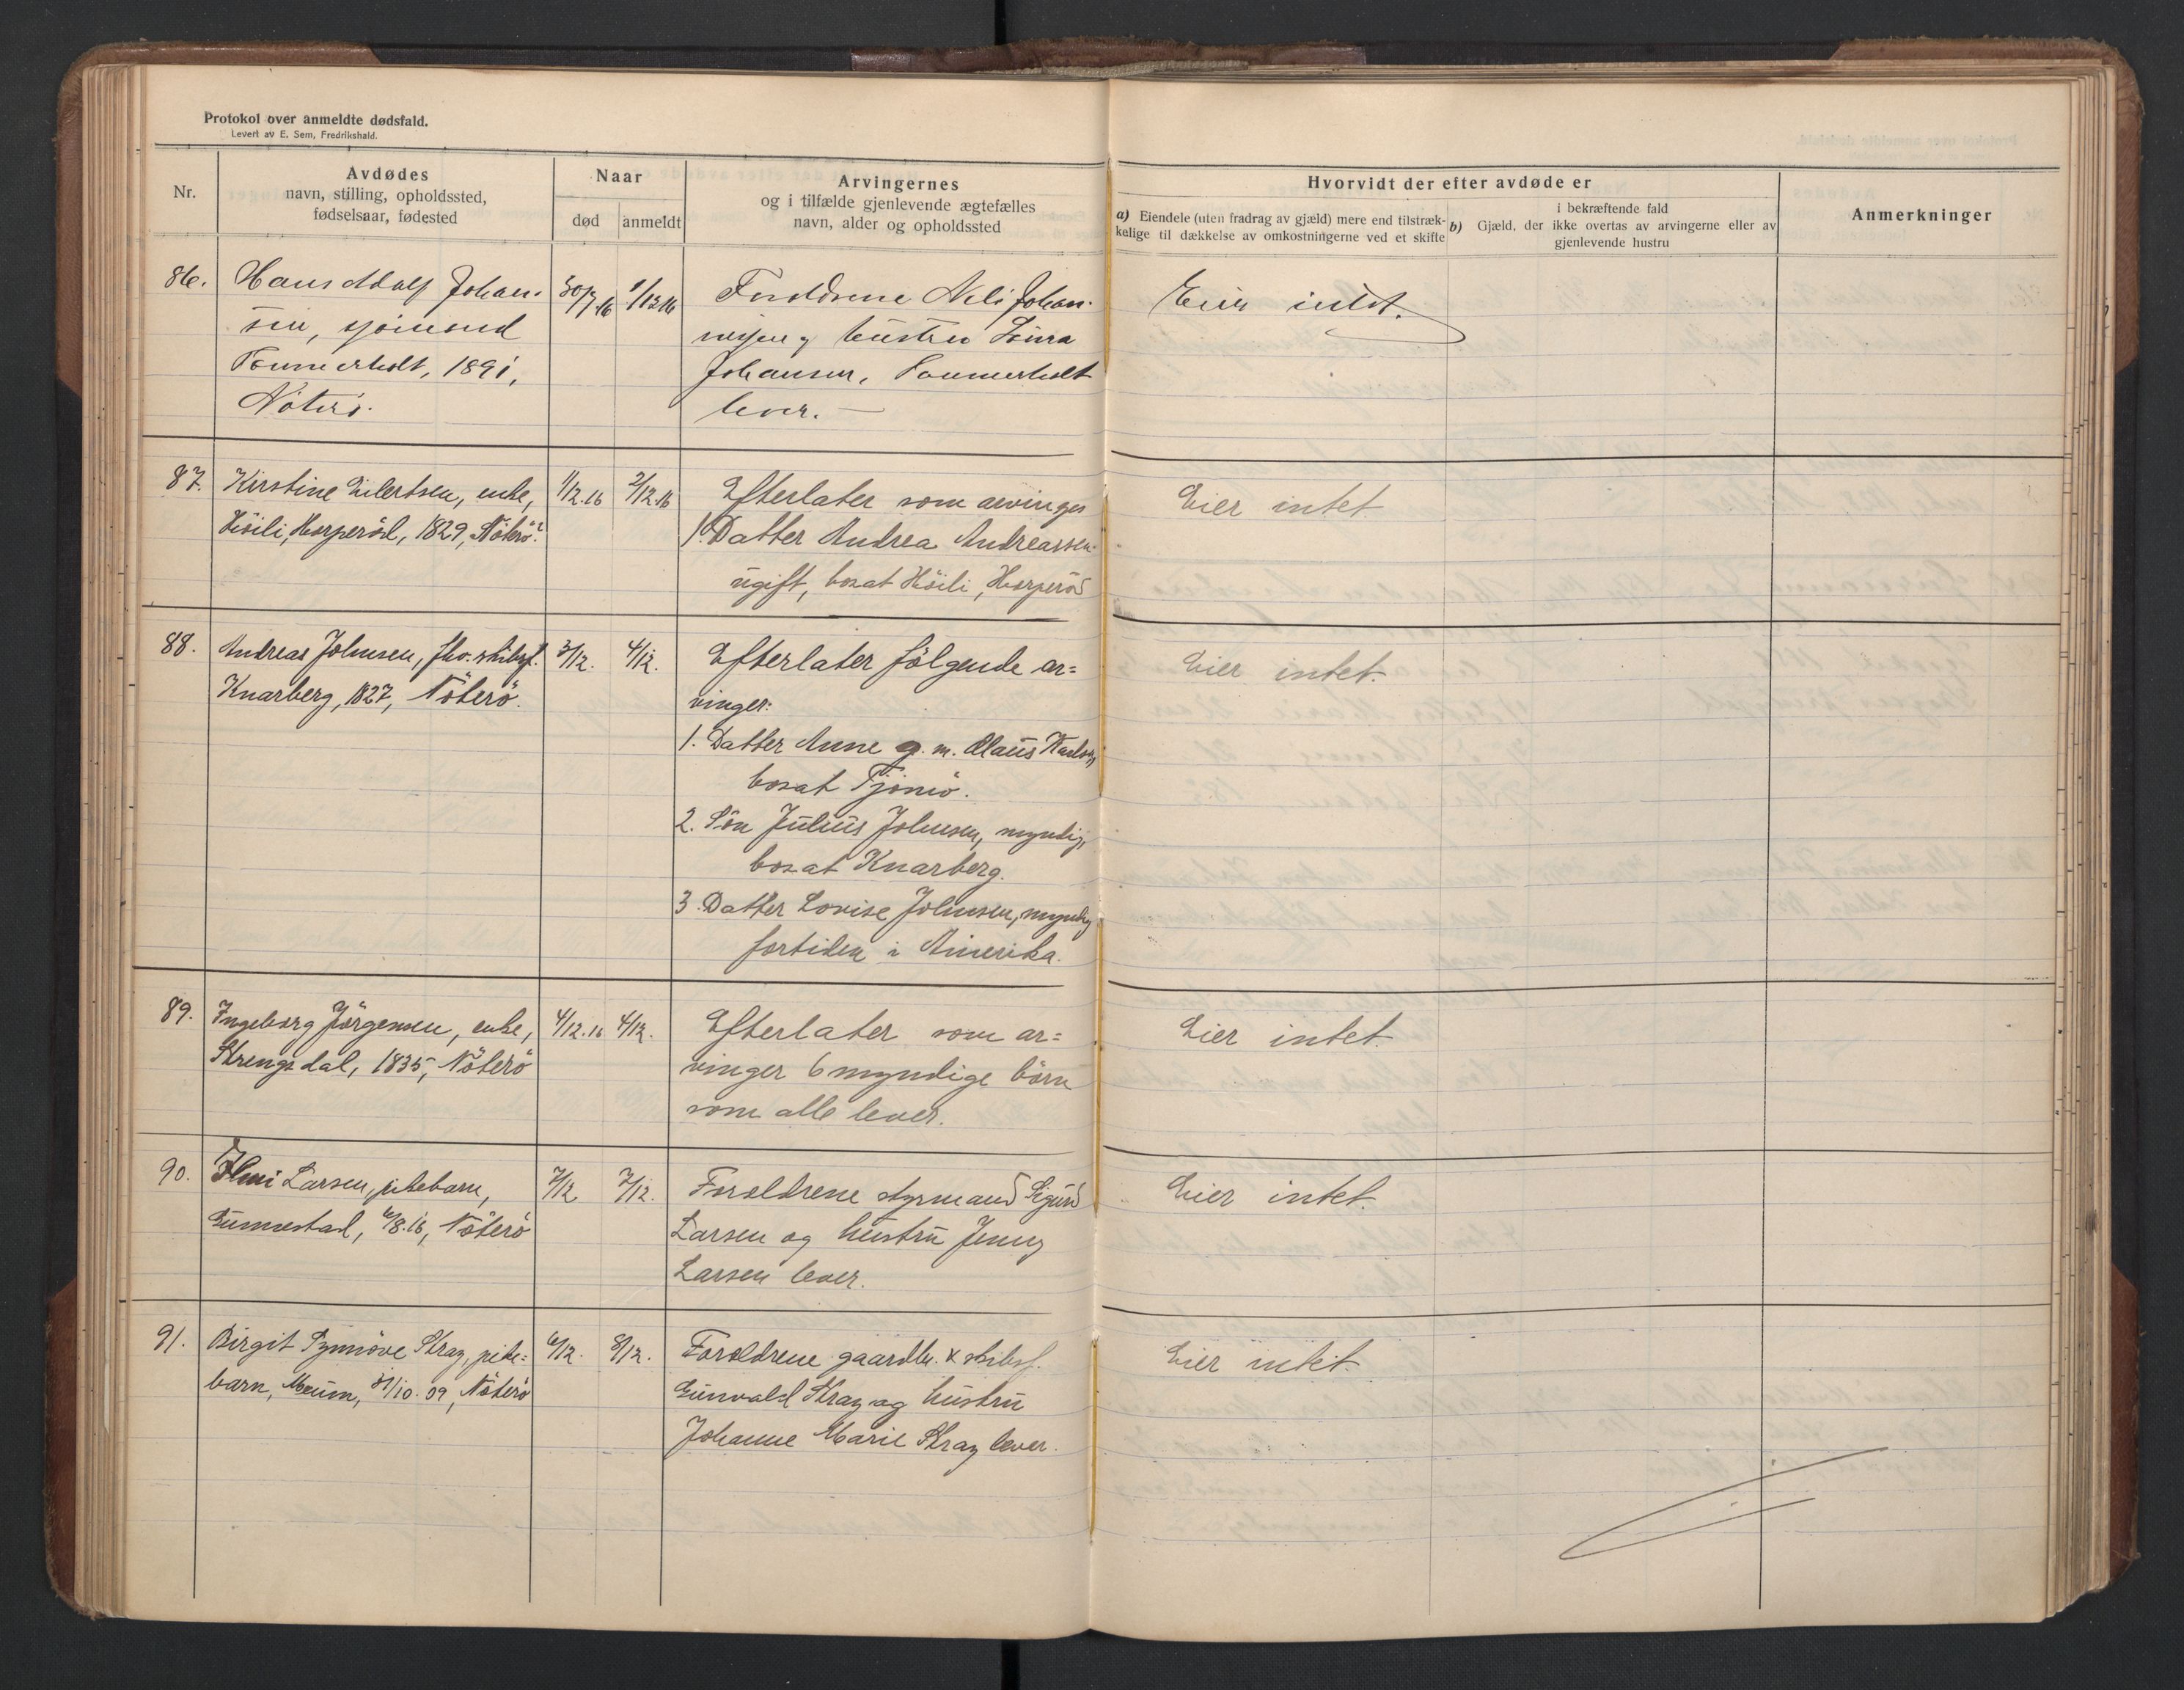 Protokol over anmeldte dødsfald.
Levert av E. Sem, Fredrikshald.
Nr.
Avdødes
navn, stilling, opholdssted,
fødselsaar, fødested
Naar
død
anmeldt
Arvingernes
og i tilfælde gjenlevende ægtefælles
navn, alder og opholdssted
Hvorvidt der efter avdøde er
a) Eiendele (uten fradrag av gjæld) mere end tilstræk-
kelige til dækkelse av omkostningerne ved et skifte
i bekræftende fald
b) Gjæld, der ikke overtas av arvingerne eller av
gjenlevende hustru
Anmerkninger
86.
Hans Adolf Johan-
sen, sjömand
1891,
Nöterö.
30/7 16
1/12 16
Forældrene Johan-
og hustru
Johansen,
lever. —
Eier intet.
87.
Kirstine Eilertsen, enke,
Höili, Herperöd, 1829, Nöterö.
1/12.16
2/12.16
Efterlater som arvinger
1. Datter Andrea Andreassen
ugift, bosat Höili, Herperöd
Eier intet
88.
Andreas Johnsen, fhv. skibsf.
Knarberg, 1827, Nöterö.
3/12.
4/12.
Efterlater følgende ar=
vinger:
1. Datter Anne g. m. Olaus Karlsen,
bosat Tjömö.
2. Sön Julius Johnsen, myndig,
bosat Knarberg.
3. Datter Lovise Johnsen, myndig
fortiden i Amerika.
Eier intet.
89.
Ingeborg Jörgensen, enke,
Strengsdal, 1835, Nöterö
4/12.16
4/12.
Efterlater som ar=
vinger 6 myndige börn
som alle lever.
Eier intet.
90.
Larsen, pikebarn,
Gunnestad, 8.16, Nöterö
7/12
7/12.
Forældrene styrmand Sigurd
Larsen og hustru Jenny
Larsen lever.
Eier intet.
91.
Birgit Synnöve Stray, pike=
barn, Meum, 31/10.09, Nöterö
6/12.
8/12.
Forældrene gaardbr. & skibsf.
Gunvald Stray og hustru
Johanne Marie Stray lever.
Eier intet.